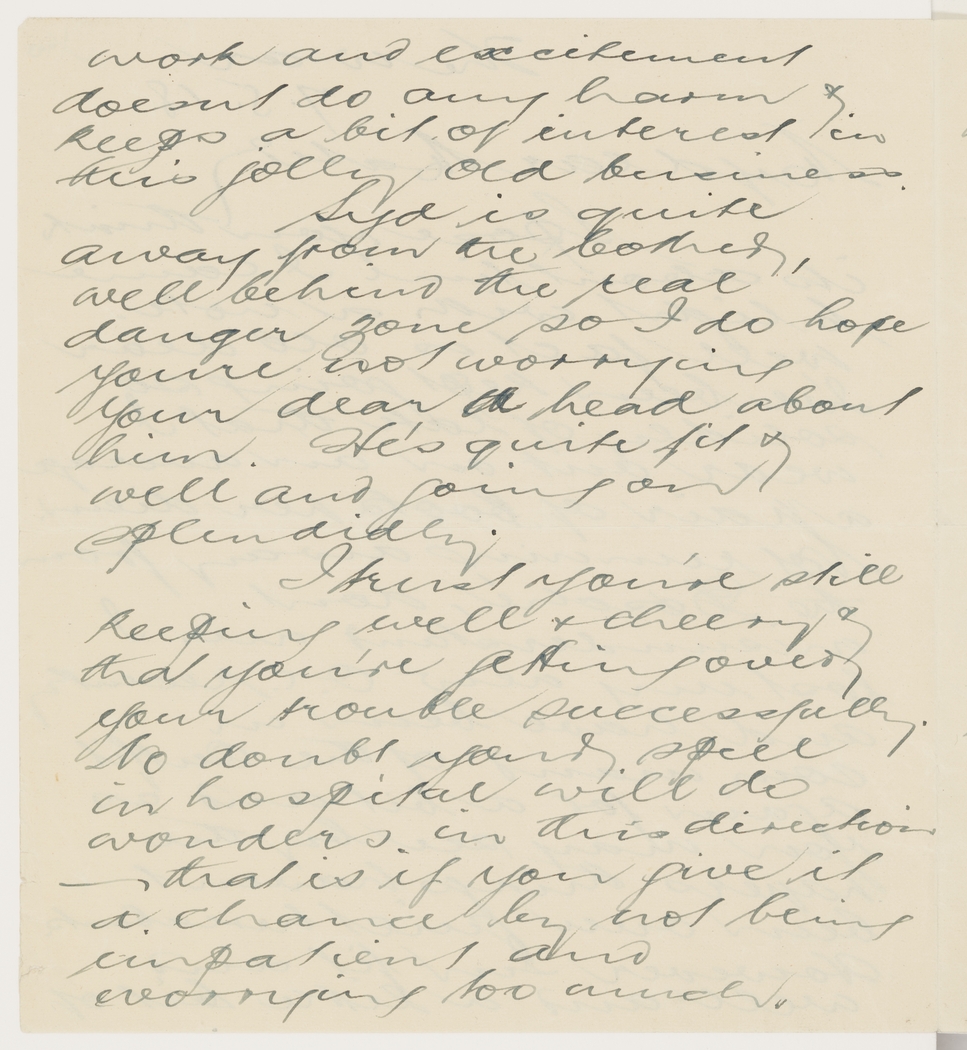 work and excitement
doesnt do any harm &
keeps a bit of interest in
this jolly old business.
Syd is quite
away from the bother,
well behind the real
danger zone so I do hope
youre not worrying
your dear head about
him. He's quite fit &
well and going on
splendidly.
I trust you're still
keeping well & cheery &
that you're getting over
your trouble successfully.
No doubt your spell
in hospital will do
wonders in this direction
— that is if you give it
a chance by not being
impatient and
worrying too much.